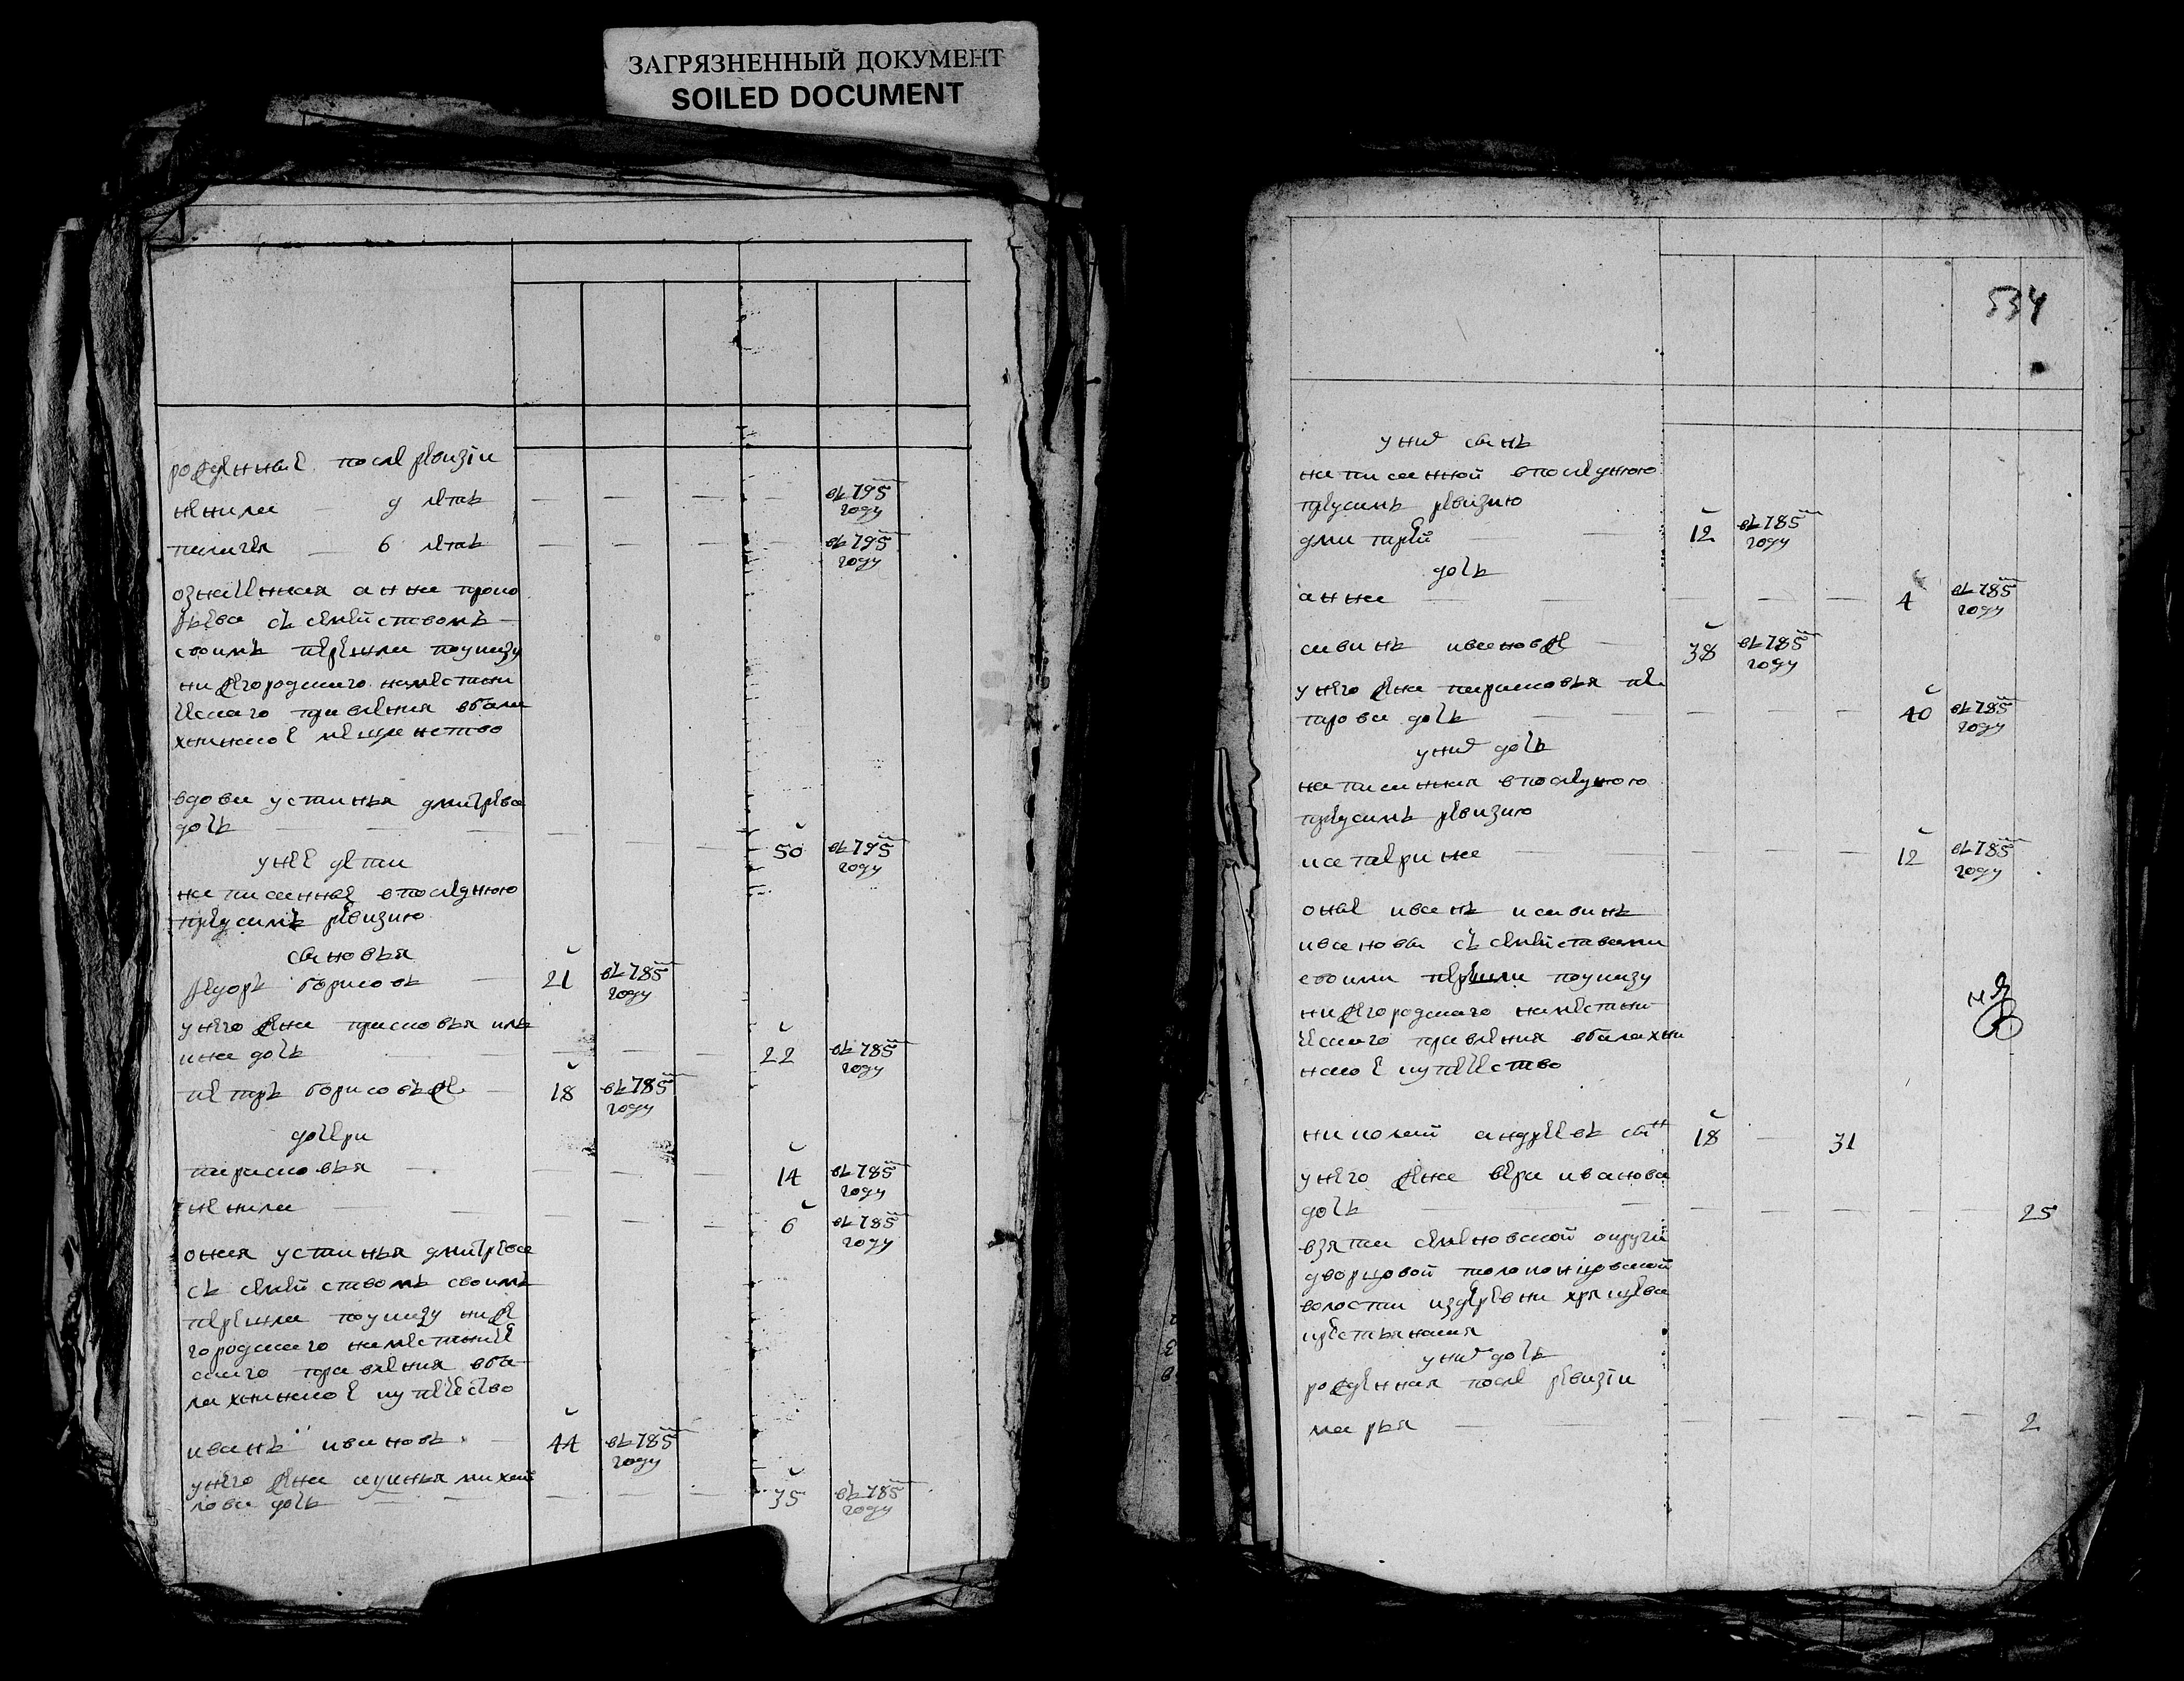 ЗАГРЯЗНЕННЫЙ ДОКУМЕНТ
SOILED DOCUMENT
рожденные после ревизiи
ненила — 9 летъ — — — — въ 795 году
палагея — 6 летъ — — — — въ 795 году
означенная анна проко
фьева съ семействомъ
своимъ перешла поуказу
нижегородскаго наместни
ческаго правления вбала
хнинское мещанство
вдова устинья дмитрева
дочь — — — — — — 50 въ 795 году
унее дети
написанные впоследнюю
предсимъ ревизию
сыновья
федоръ борисовъ — 21 въ 785 году
унего жена прасковья иль
ина дочь — — — — 22 въ 785 году
петръ борисовъ же — 18 въ 785 году
дочери
парасковья — — — — 14 въ 785 году
ненила — — — — — 6 въ 785 году
оная устинья дмитрева
съ семействомъ своимъ
перешла поуказу ниже
городскаго наместниче
скаго правления вба
лахнинское купечество
иванъ ивановъ — 44 въ 785 году
унего жена акулинья михай
лова дочь — — — — — 35 въ 785 году
534
уних сынъ
написанной впоследнюю
предсимъ ревизию
дмитрей — — 12 въ 785 году
дочь
анна — — — — — 4 въ 785 году
савинъ ивановже — 38 въ 785 году
унего жена парасковья пе
трова дочь — — — — 40 въ 785 году
уних дочь
написанная впоследнюю
предсимъ ревизию
катерина — — — — — 12 въ 785 году
оные иванъ исавинъ
ивановы съ семействами
своими перешли поуказу
нижегородскаго наместни
ческаго правления вбалахни
нское купечество
николай андреевъ сынъ 18 — 31
унего жена вера иванова
дочь — — — — — — — 25
взята семеновской округи
дворцовой толоконцовской
волости издеревни хрящева
крестьянская
уних дочь
рожденная после ревизiи
марья — — — — — — — 2